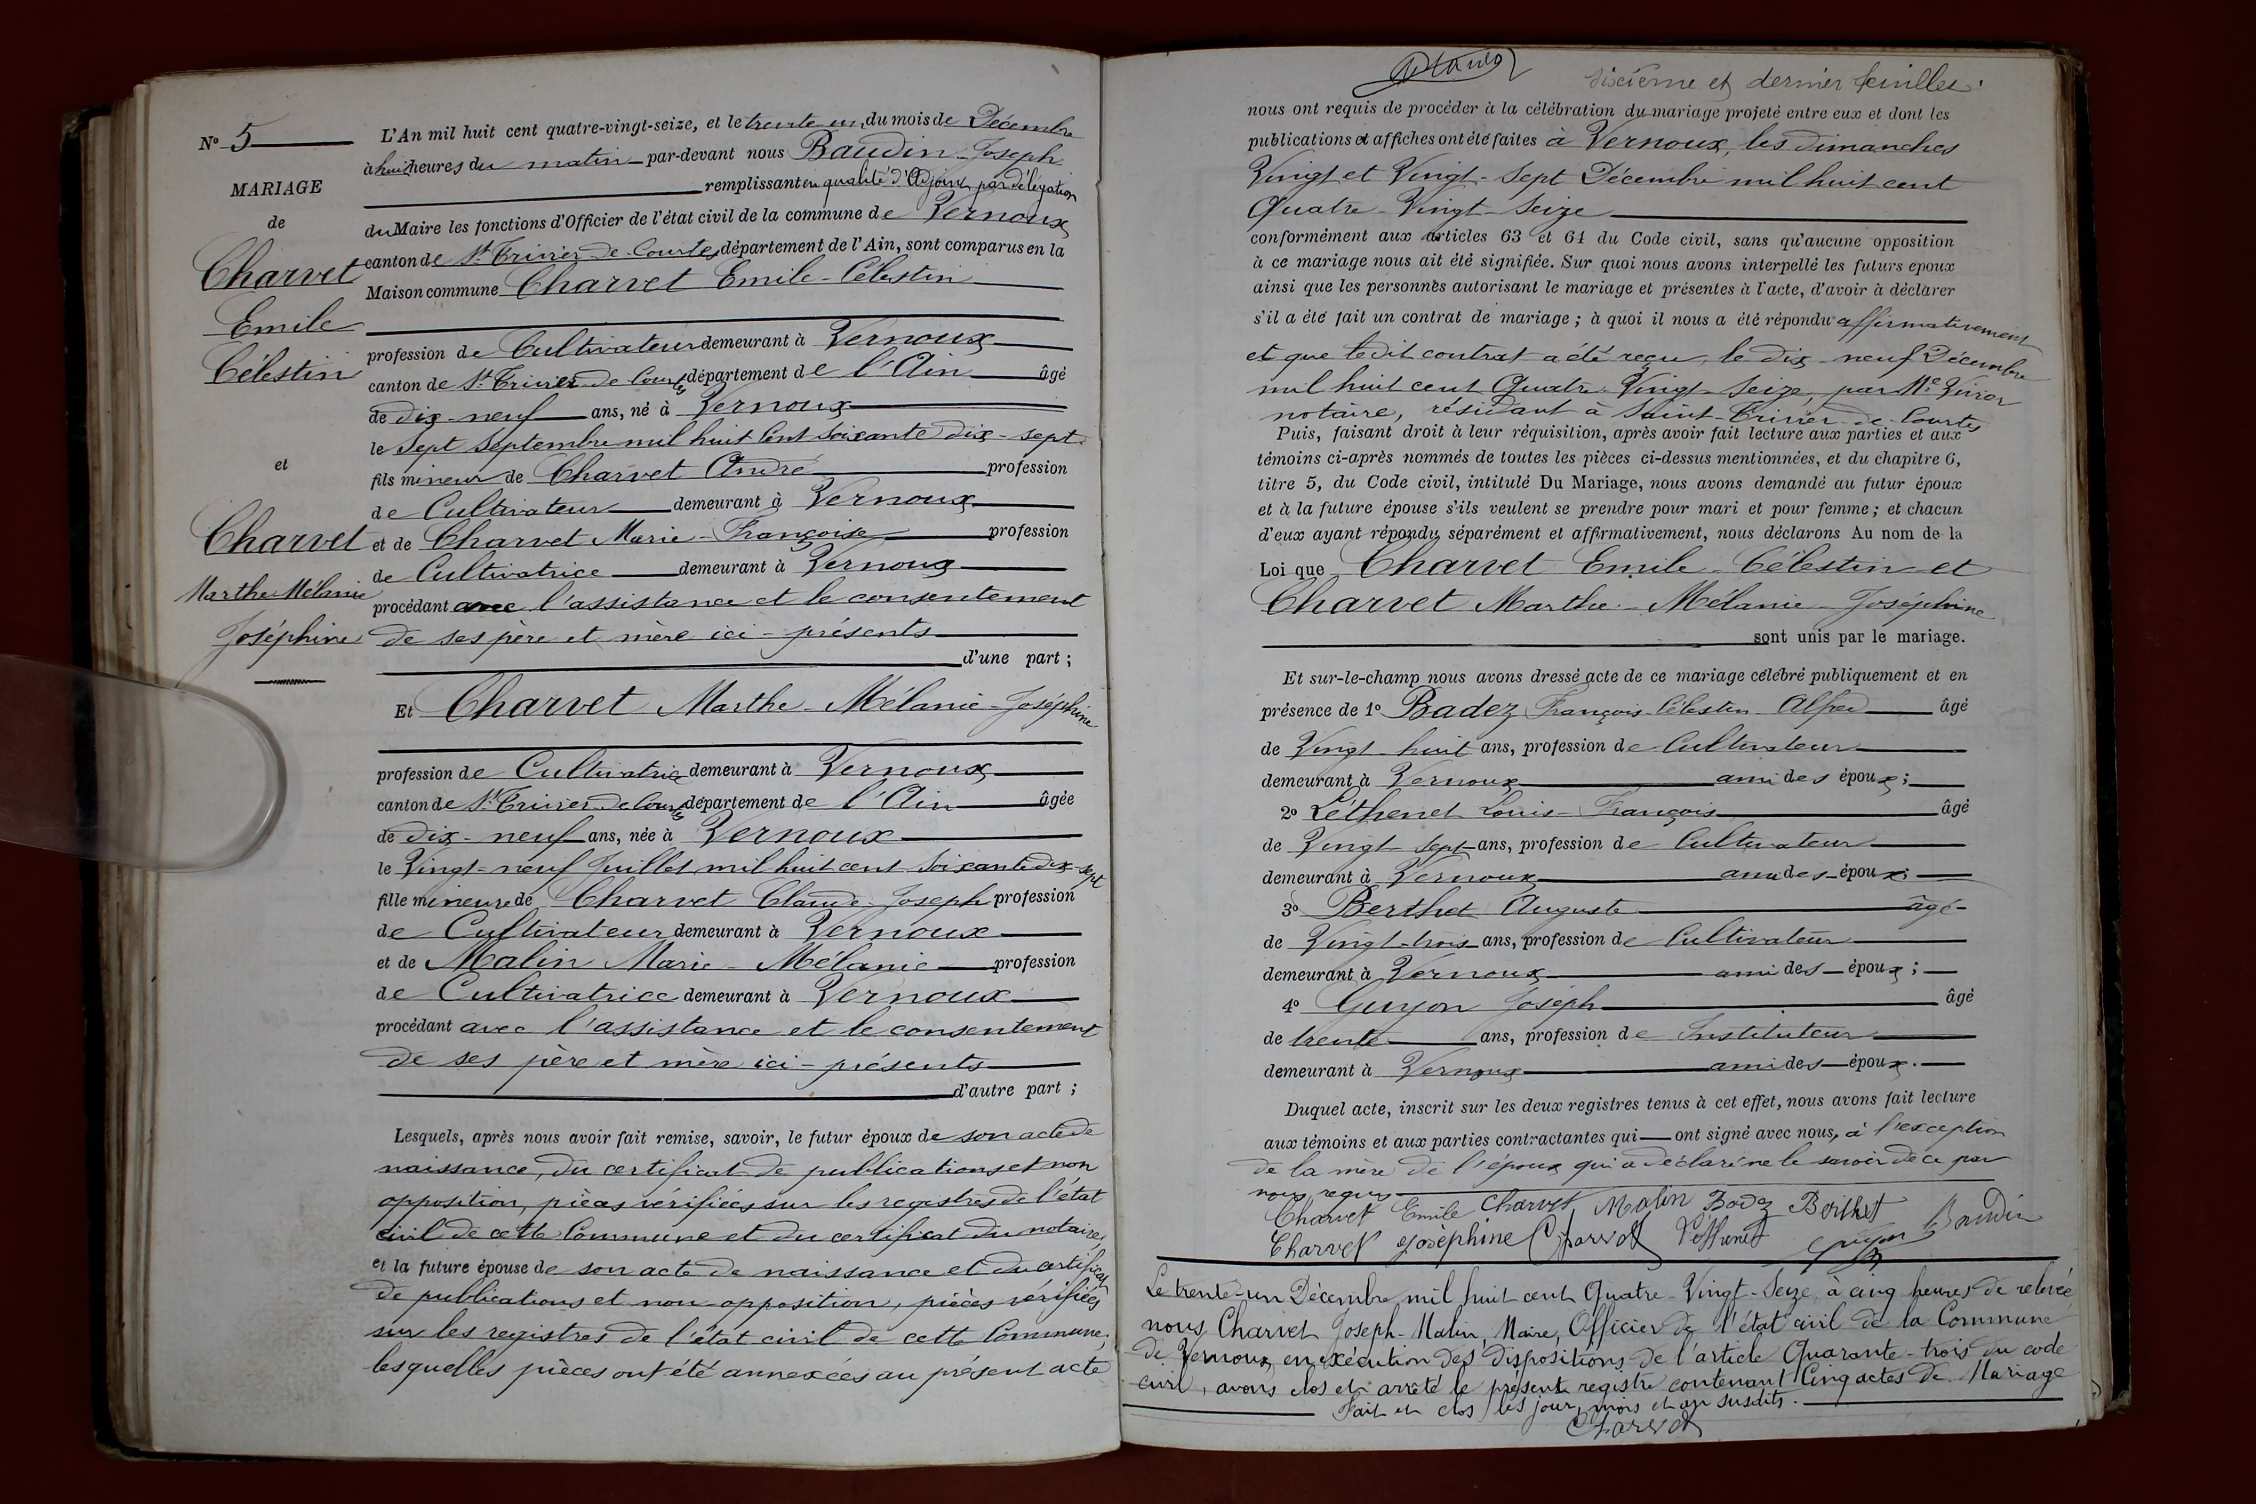 N° 5
MARIAGE
de
Charvet
Emile
Célestin
et
Charvet
Marthe Mélanie
Joséphine
L'An mil huit cent quatre-vingt-seize, et le trente un du mois de Décembre
à huit heures du matin par-devant nous Baudin Joseph
remplissant en qualité d'Adjoint par délégation
du Maire les fonctions d'Officier de l'état civil de la commune de Vernoux
canton de St Trivier-de-Courtes département de l'Ain, sont comparus en la
Maison commune Charvet Emile-Célestin
profession de Cultivateur demeurant à Vernoux
canton de St Trivier de Courtes département de l'Ain âgé
de dix-neuf ans, né à Vernoux
le Sept Septembre mil huit Cent Soixante dix-sept
fils mineur de Charvet André profession
de Cultivateur demeurant à Vernoux
et de Charvet Marie-Françoise profession
de Cultivatrice demeurant à Vernoux
procédant avec l'assistance et le consentement
de ses père et mère ici-présents
d'une part ;
Et Charvet Marthe-Mélanie-Joséphine
profession de Cultivatrice demeurant à Vernoux
canton de St Trivier de Courtes département de l'Ain âgée
de dix-neuf ans, née à Vernoux
le Vingt-neuf Juillet mil huit cent Soixante dix-sept
fille mineure de Charvet Claude-Joseph profession
de Cultivateur demeurant à Vernoux
et de Malin Marie-Mélanie profession
de Cultivatrice demeurant à Vernoux
procédant avec l'assistance et le consentement
de ses père et mère ici-présents
d'autre part ;
Lesquels, après nous avoir fait remise, savoir, le futur époux de son acte de
naissance, du certificat de publications et non
opposition, pièces vérifiées sur les registres de l'état
civil de cette Commune et du certificat du notaire,
et la future épouse de son acte de naissance et du certificat
de publications et non-opposition, pièces vérifiées
sur les registres de l'état civil de cette Commune,
lesquelles pièces ont été annexées au présent acte
Sixième et dernier feuillet.
nous ont requis de procéder à la célébration du mariage projeté entre eux et dont les
publications et affiches ont été faites à Vernoux, les dimanches
Vingt et Vingt-Sept Décembre mil huit cent
Quatre-Vingt-Seize
conformément aux articles 63 et 64 du Code civil, sans qu'aucune opposition
à ce mariage nous ait été signifiée. Sur quoi nous avons interpellé les futurs epoux
ainsi que les personnes autorisant le mariage et présentes à l'acte, d'avoir à déclarer
s'il a été fait un contrat de mariage ; à quoi il nous a été répondu affirmativement
et que ledit contrat a été reçu, le dix-neuf Décembre
mil huit cent Quatre-Vingt-Seize, par Me
notaire, résidant à Saint-Trivier-de-Courtes
Puis, faisant droit à leur réquisition, après avoir fait lecture aux parties et aux
témoins ci-après nommés de toutes les pièces ci-dessus mentionnées, et du chapitre 6,
titre 5, du Code civil, intitulé Du Mariage, nous avons demandé au futur époux
et à la future épouse s'ils veulent se prendre pour mari et pour femme ; et chacun
d'eux ayant répondu séparément et affirmativement, nous déclarons Au nom de la
Loi que Charvet Emile-Célestin et
Charvet Marthe-Mélanie-Joséphine
sont unis par le mariage.
Et sur-le-champ nous avons dressé acte de ce mariage célébré publiquement et en
présence de 1° Badez François-Célestin-Alfred âgé
de Vingt-huit ans, profession de Cultivateur
demeurant à Vernoux ami des époux ;
2° Léthenet Louis-François âgé
de Vingt-Sept ans, profession de Cultivateur
demeurant à Vernoux ami des époux ;
3° Berthet Auguste âgé
de Vingt-trois ans, profession de Cultivateur
demeurant à Vernoux ami des époux ;
4° Guyon Joseph âgé
de trente ans, profession de Instituteur
demeurant à Vernoux ami des époux.
Duquel acte, inscrit sur les deux registres tenus à cet effet, nous avons fait lecture
aux témoins et aux parties contractantes qui ont signé avec nous, à l'exception
de la mère de l'époux qui a déclaré ne le savoir de ce par
nous requis
Charvet Emile Charvet Malin Badez Berthet
Charvet Joséphine Charvet Léthenet Guyon Baudin
Le trente-un Décembre mil huit cent Quatre-Vingt-Seize, à cinq heures de relevée
nous, Charvet Joseph-Malin, Maire, Officier de l'état civil de la Commune
de Vernoux, en exécution des dispositions de l'article Quarante-trois du code
civil, avons clos et arrêté le présent registre contenant Cinq actes de Mariage
Fait et clos les jour, mois et an susdits.
Charvet